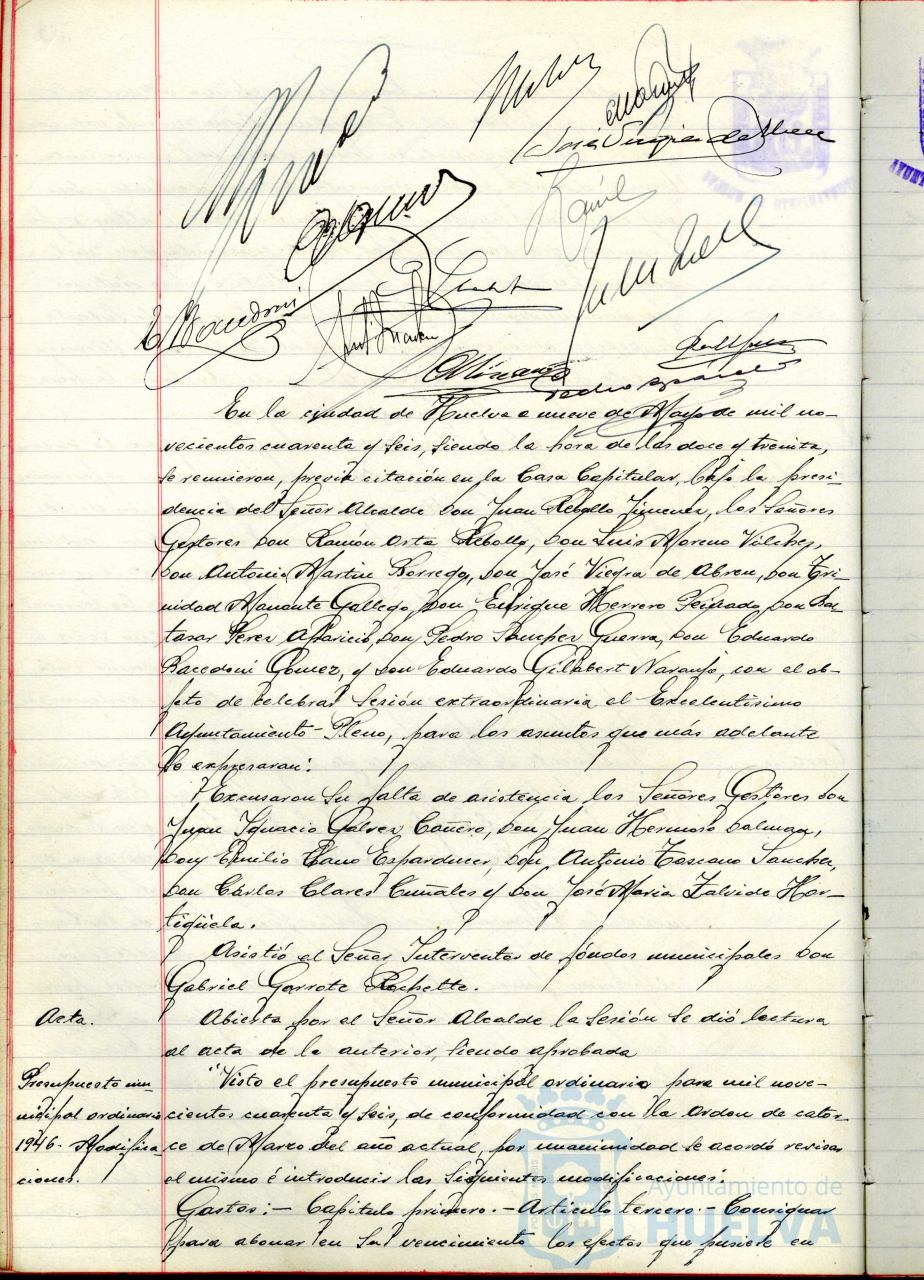 José Viegra de Abreu
E. Bacedoni
E. Gilabert
Pedro
En la ciudad de Huelva a nueve de Mayo de mil no-
vecientos cuarenta y seis, siendo la hora de las doce y treinta,
se reunieron, previa citación en la Casa Capitular, bajo la presi-
dencia del Señor Alcalde Don Juan Rebollo Jimenez, los Señores
Gestores Don Ramón Orta Rebollo, Don Luis Moreno Vilchez,
Don Antonio Martin Borrego, Don José Viegra de Abreu, Don Tri-
nidad Manante Gallego, Don Enrique Herrero Peinado, Don Bal-
tasar Perez Aparicio, Don Pedro Sampher Guerra, Don Eduardo
Bacedoni Gómez, y Don Eduardo Gilabert Naranjo, con el ob-
jeto de celebrar Sesión extraordinaria el Excelentísimo
Ayuntamiento-Pleno, para los asuntos que más adelante
se expresaran:
Excusaron su falta de asistencia los Señores Gestores Don
Juan Ignacio Galvez Cañero, Don Juan Hermoso
Don Emilio Cano Don Antonio Toscano Sanchez,
Don Carlos Clares y Don José Maria Zalvide Hor-
tigüela.
Asistió el Señor Interventor de fondos municipales Don
Gabriel Garrote Rochette.
Acta.
Abierta por el Señor Alcalde la Sesión se dió lectura
al acta de la anterior, siendo aprobada
Presupuesto mu-
nicipal ordinario
1946. Modifica-
ciones.
"Visto el presupuesto municipal ordinario para mil nove-
cientos cuarenta y seis, de conformidad con la Orden de cator-
ce de Marzo del año actual, por unanimidad se acordó revisar
el mismo é introducir las siguientes modificaciones:
Gastos:- Capitulo primero.- Articulo tercero.- Consignar
para abonar en su vencimiento los efectos que pusiere en
Ayuntamiento de
HUELVA